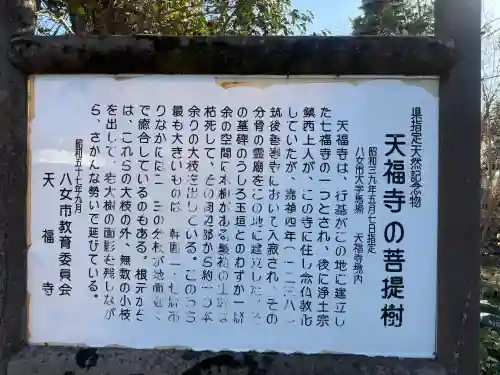 県指定天然記念物
天福寺の菩提樹
昭和三九年五月七日指定
八女市大字馬場 天福寺境内
天福寺は、行基がこの地に建立し
た七福寺の一つとされ、後に浄土宗
鎮西上人が、この寺に住し念仏教化
していたが、嘉禎四年(一二三八)
筑後善導寺において入寂され、その
分骨の霊廟をこの地に建立した。そ
の墓碑のうしろ玉垣とのわずか一坪
余の空間に本樹がある。最初の主幹は
枯死して、その周辺部から約一〇本
余りの大枝を出している。このうち
最も大きいものは、幹囲一・七
りなかには二、三の分枝が地面近く
で癒合しているのもある。根元から
は、これらの大枝の外、無数の小枝
を出して、老大樹の面影を残しなが
ら、さかんな勢いで延びている。
昭和五十七年九月
八女市教育委員会
天福寺